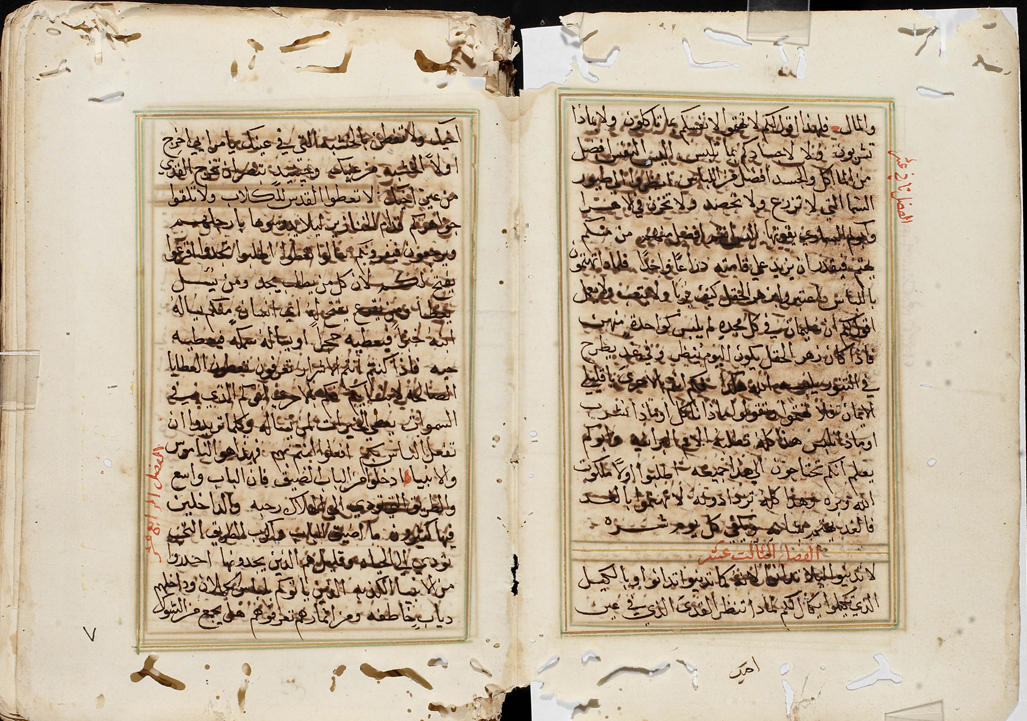 والمال فلهذا اقول لكم لا تهتموا لانفسكم بما تاكلون ولا بماذا
تشربون ولا لاجسادكم بما تلبس اليس النفس افضل
من الماكل والجسد افضل من اللباس انظروا الى طيور
السما التي لا تزرع ولا تحصد ولا تخزن في الاهرا
وابوكم السماوي يقوتها اليس انتم افضل منهم من منكم
يهتم فيقدر ان يزيد على قامته ذراعا واحدا فلماذا تهتمون
باللباس اعتبروا بزهر الحقل كيف ينمو ولا يتعب ولا يعمل
اقول لكم ان سليمان في كل مجده لم يلبس كواحدة منهن
فاذا كان زهر الحقل يكون اليوم وفي غد يطرح
في التنور يا قليلي
الايمان فلا تهتموا وتقولوا ماذا ناكل او ماذا نشرب
او ماذا نلبس هذا كله تطلبه الامم البرانيه وابوكم
يعلم انكم تحتاجون الى هذا جميعه اطلبوا اولا ملكوت
الله وبره وهذا كله تزدادونه لا تهتموا بالغد
فالغد يهتم بشانه ويكفي كل يوم شره
الفصل الثالث عشر
لا تدينوا ليلا تدانوا لانه كما تدينوا تدانوا وبالكيل
الذي تكيلوا يكال لكم لماذا تنظر القذى الذي في عين
الفصل ثاني عشر
اخيك
اخيك ولا تفطن بالخشبه التي في عينك يا مرايي اخرج
اولا الخشبه من عينك وحينيذ تنظر ان تخرج القذى
من عين اخيك لا تعطوا القدس للكلاب ولا تلقوا
جواهركم قدام الخنازير ليلا تدوسها بارجلهم
ويرجعون فيمزقونكم سالوا تعطوا اطلبوا تجدوا اقرعوا
يفتح لكم لان كل من يطلب يجد ومن يسل
يعطا ومن يقرع يفتح له اي انسان منكم يساله
ابنه خبزا فيعطيه حجرا او يساله سمكه فيعطيه
حيه فاذا كنتم انتم الاشرار تعرفون تعطون العطايا
الصالحه لابنايكم فكم بالاحرى ابوكم الذي في
السموات يعطي الخيرات لمن يساله وكلما تريدوا ان
تفعل الناس بكم افعلوا انتم بهم فهذا هو الناموس
والانبيا ادخلوا من الباب الضيق فان الباب واسع
والطريق المودي الى الهلاك رحبه والداخلين
فيها كثير ما اضيق الباب واكرب الطريق التي
تودي الى الحياه وقليل هم الذين يجدونها احذروا
من الانبيا الكذبه الذين ياتونكم بلباس الحملان وداخلهم
دياب خاطفه ومن اثمارهم تعرفونهم هل يجمع من الشوك
الفصل الرابع عشر
٧